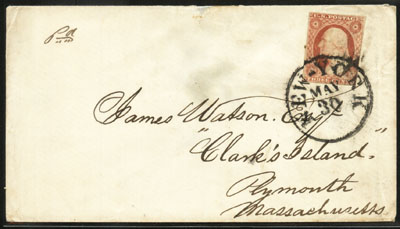 U.S. POSTAGE
NEW-YORK
MAY
30
James Watson. Esq
"Clark's Island."
Plymouth
Massachusetts